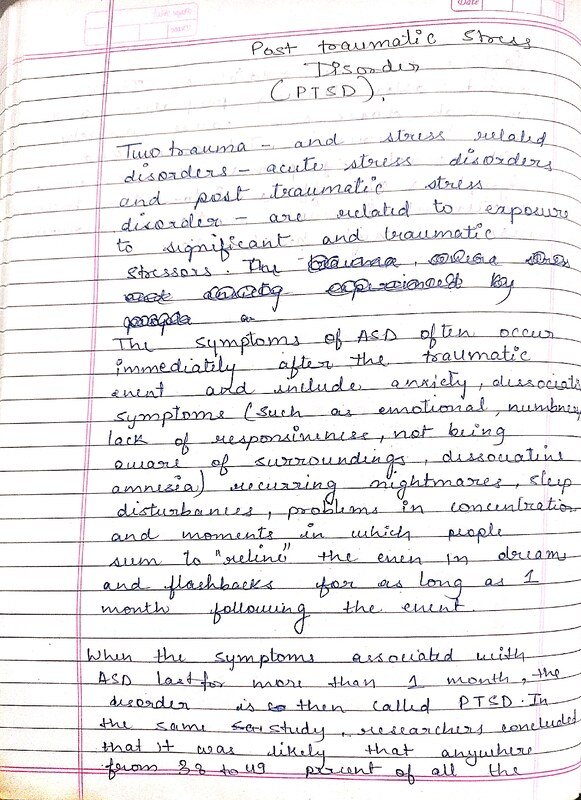 Date
Post traumatic Stress
Disorder
(PTSD).
Two trauma - and stress related
disorders - acute stress disorders
and post traumatic stress
disorder - are related to exposure
to significant and traumatic
stressors. The
by
The symptoms of ASD often occur
immediately after the traumatic
event and include anxiety, dissociati
symptoms (such as emotional, numbnes
lack of responsiveness, not being
aware of surroundings, dissociative
amnesia) recurring nightmares, sleep
disturbances, problems in concentration
and moments in which people
seem to "relive" the even in dream
and flashbacks for as long as 1
month following the event
When the symptoms associated with
ASD last for more than 1 month, the
disorder is then called PTSD. In
the same study, researchers concluded
that it was likely that anywhere
from 38 to 49 percent of all the